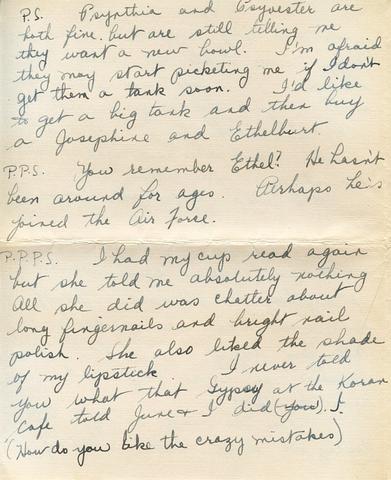 P.S. Psynthia and Psyvester are
both fine. but are still telling me
they want a new bowl. I'm afraid
they may start picketing me if I don't
get them a tank soon. I'd like
to get a big tank and then buy
a Josephine and Ethelburt.
P.P.S. You remember Ethel? He hasn't
been around for ages. Perhaps he's
joined the Air Force.
P.P.P.S. I had my cup read again
but she told me absolutely nothing
All she did was chatter about
long fingernails and bright nail
polish. She also liked the shade
of my lipstick I never told
you what that Gypsy at the Koran
Cafe told June & I did (you).!.
(How do you like the crazy mistakes)